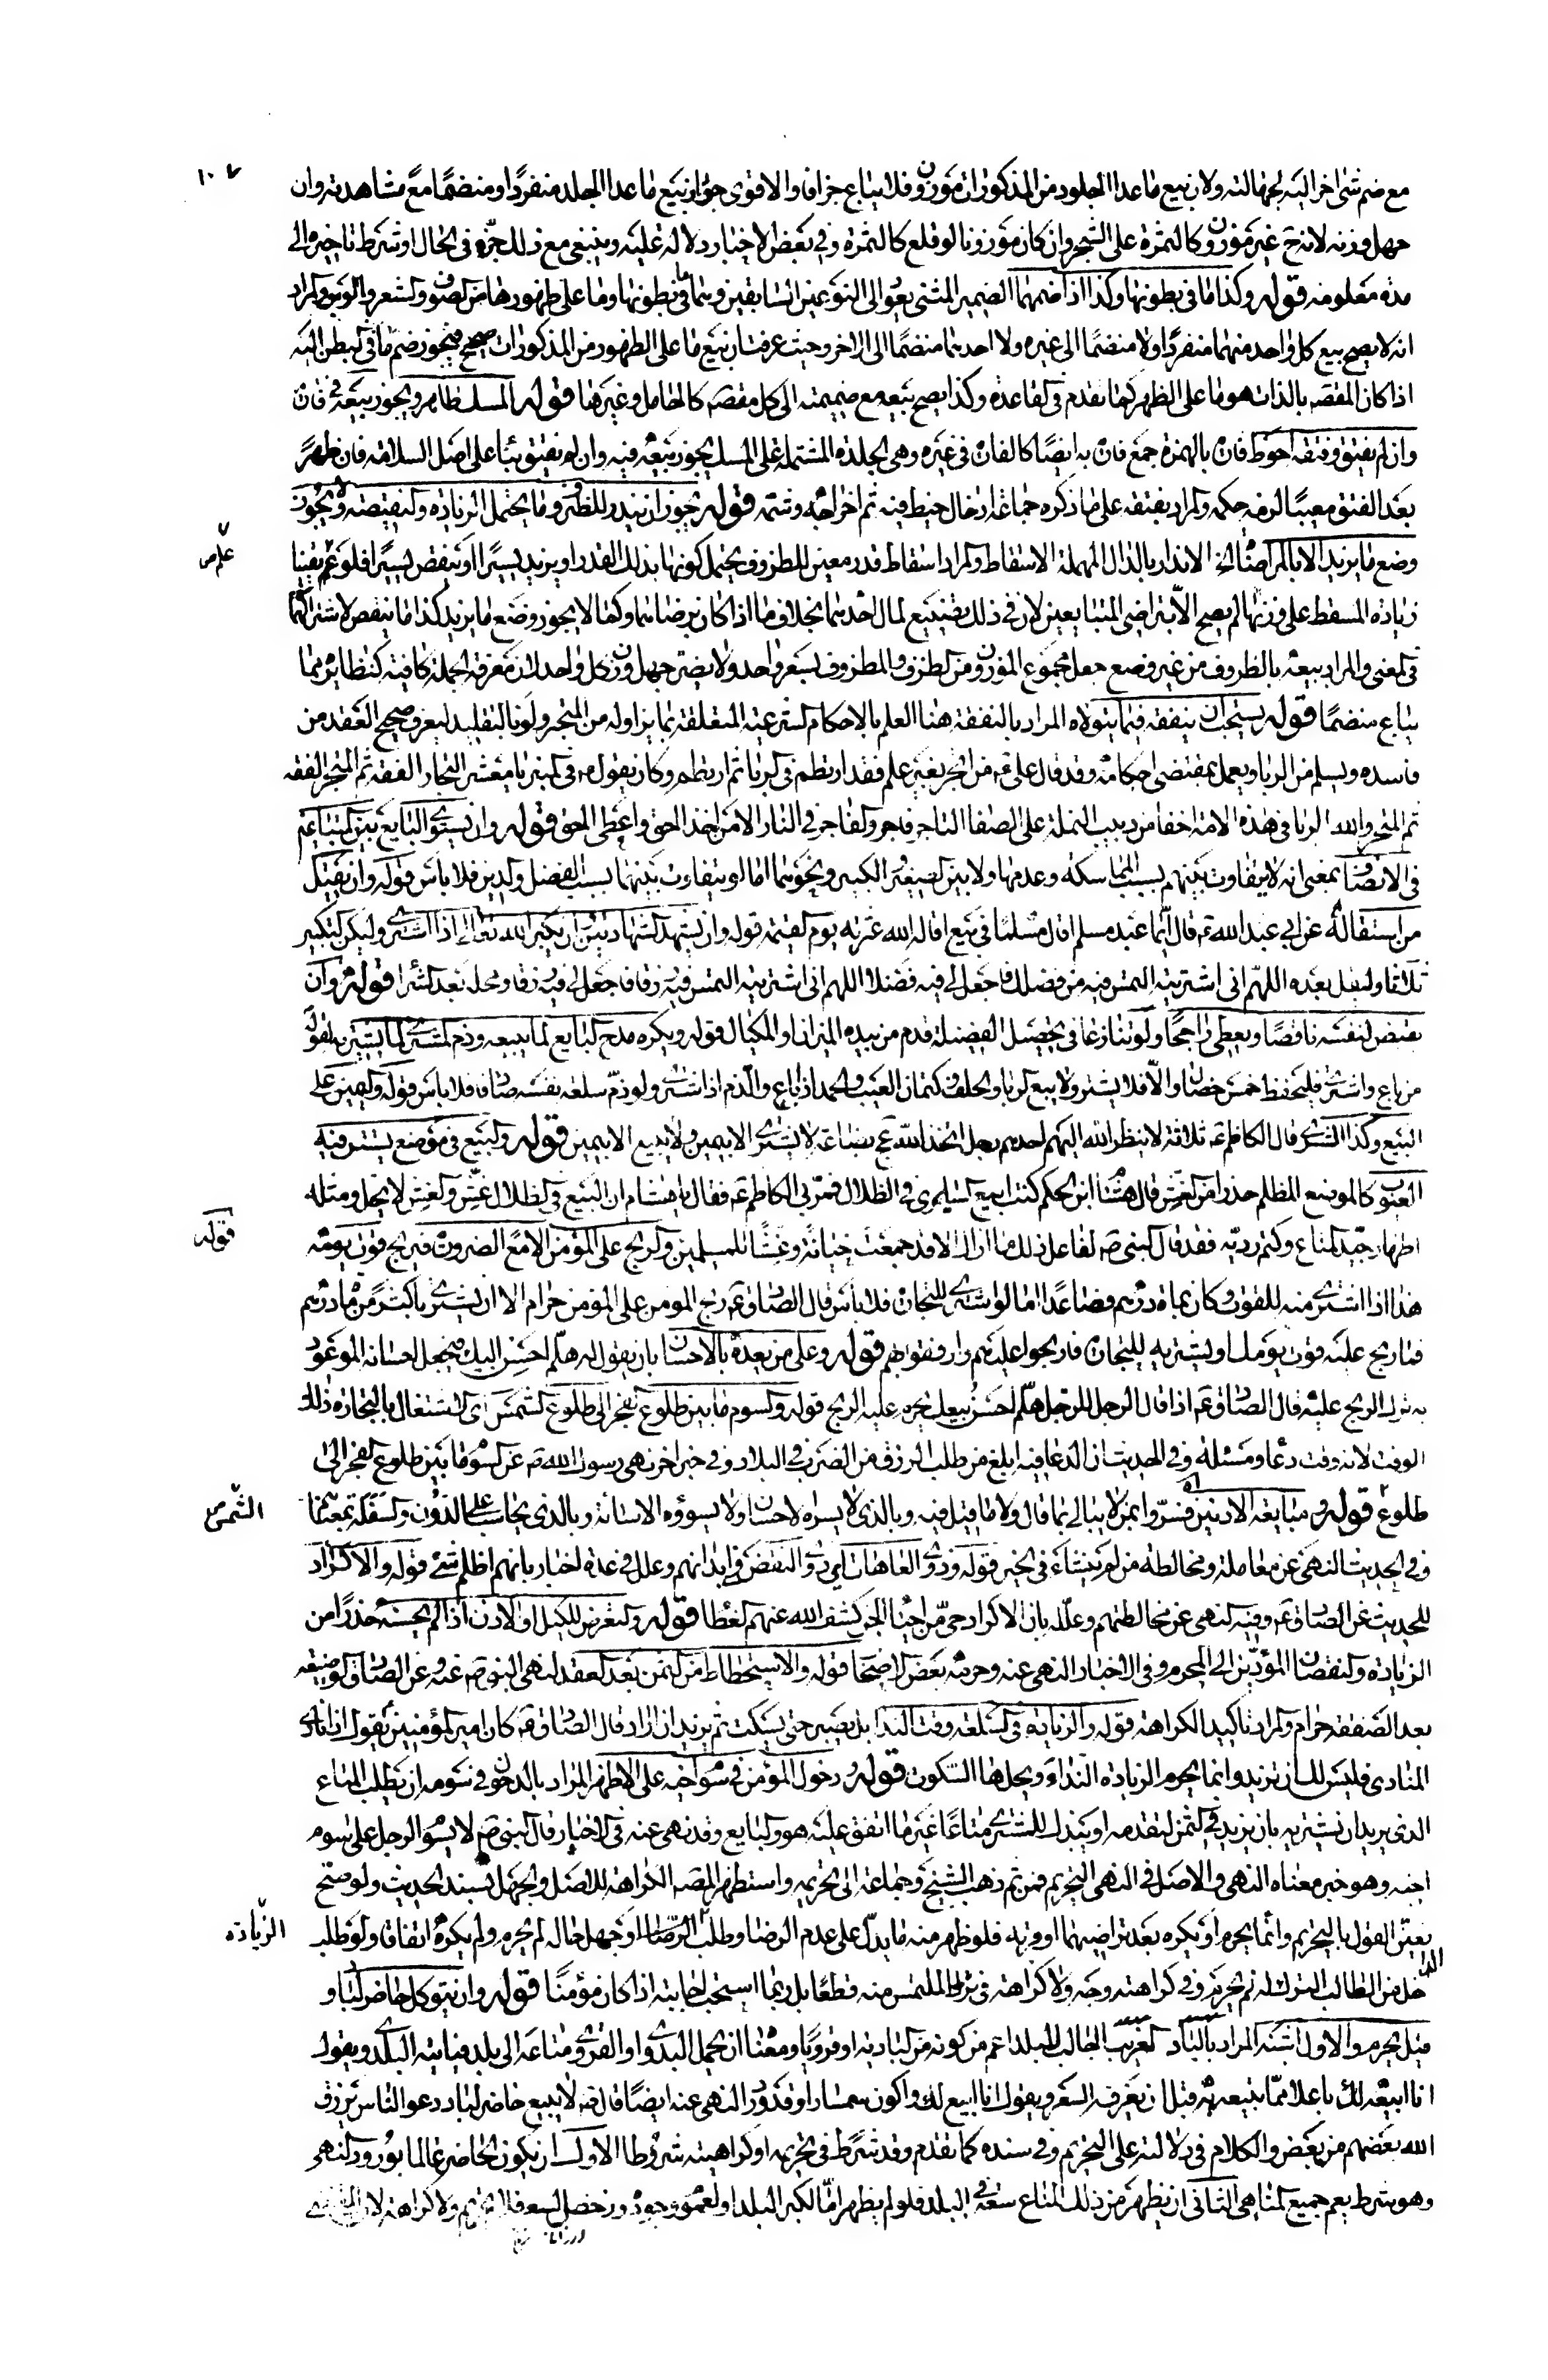 ١٠٧
مع ضم شئ اخر اليه لجهالته ولان بيع ما عدا الجلود من المذكورات موزون فلا يباع جزافا والاقوى جواز بيع ما عدا الجلد منفردا ومنضما مع مشاهدته وان
جهل وزنه لانه ح غير موزون كالثمرة على الشجر وان كان موزونا لو قلع كالثمرة وفي بعض الاخبار دلالة عليه وينبغي مع ذلك جزه في الحال او شرط تاخيره الى
مدة معلومة قوله وكذا ما في بطونها وكذا اذا ضمهما الضمير المثنى يعود الى النوعين السابقين وهما ما في بطونها وما على ظهورها من الصوف والشعر والوبر والمراد
انه لا يصح بيع كل واحد منهما منفردا ولا منضما الى غيره ولا احدهما منضما الى الاخر وحيث عرفت ان بيع ما على الظهور من المذكورات صحيح فيجوز ضم ما في البطن اليه
اذا كان المقصد بالذات هو ما على الظهر كما تقدم في القاعدة وكذا يصح بيعه مع ضميمته الى كل مقصد كالحامل وغيرها قوله المسك طاهر ويجوز بيعه في فاره
وان لم يفتق وفتقه احوط فار بالهمزة جمع فارة به ايضا كالفارة في غيره وهي الجلدة المشتملة على المسك يجوز بيعه فيه وان لم يفتق بناء على اصل السلامة فان ظهر
بعد الفتق معيبا لزمه حكمه والمراد بفتقه على ما ذكره جماعة ادخال خيط فيه ثم اخراجه وشمه قوله يجوز ان يندر للظروف ما يحتمل الزيادة والنقيصة ولا يجوز
وضع ما يزيد الا بالمراضاة الخ الاندار بالدال المهملة الاسقاط والمراد اسقاط قدر معين للظروف يحتمل كونها بذلك القدر او يزيد يسيرا او ينقص يسيرا فلو علم يقينا
علم ص
زيادة المسقط على وزنها لم يصح الا بتراضي المتبايعين لان في ذلك تضييع لمال احدهما بخلاف ما اذا كان برضاهما وكما لا يجوز وضع ما يزيد كذا ما ينقص لاشتراكهما
في المعنى والمراد ببيعه بالظروف من غير وضع جعل مجموع الموزون من الظرف والمظروف بسعر واحد ولا يضر جهل وزن كل واحد لان معرفة الجملة كافية كنظائره مما
يباع منضما قوله يستحب ان يتفقه فيما يتولاه المراد بالتفقه هنا العلم بالاحكام الشرعية المتعلقة بما يزاوله من المتجر ولو بالتقليد ليعرف صحيح العقد من
فاسده ويسلم من الربا ويعمل بمقتضى احكامه وقد قال علي ع من اتجر بغير علم فقد ارتطم في الربا ثم ارتطم وكان يقول ع في المنبر يا معشر التجار الفقه ثم المتجر الفقه
ثم المتجر والله للربا في هذه الامة اخفى من دبيب النملة على الصفا التاجر فاجر والفاجر في النار الا من اخذ الحق واعطى الحق قوله وان يسوي البايع بين المبتاعين
في الانصاف بمعنى انه لا يفاوت بينهم بسبب المماسكة وعدمها ولا بين الصغير والكبير ونحوهما اما لو تفاوت بينهما بسبب الفضل والدين فلا باس قوله وان يقيل
من استقاله عن ابي عبد الله ع قال ايما عبد مسلم اقال مسلما في بيع اقال الله عثرته يوم القيمة قوله وان يشهد الشهادتين وان يكبر الله تعالى اذا اشترى وليكن التكبير
ثلاثا وليقل بعده اللهم اني اشتريته التمس فيه من فضلك فاجعل لي فيه فضلا اللهم اني اشتريته التمس فيه رزقا فاجعل لي فيه رزقا ومحله بعد الشراء قوله وان
يقبض لنفسه ناقصا ويعطي راجحا ولو تنازعا في تحصيل الفضيلة قدم من بيده الميزان او المكيال قوله ويكره مدح البايع لما يبيعه وذم المشتري لما يشتريه لقوله
من باع واشترى فليحفظ خمس خصال والا فلا يشتر ولا يبع الربا والحلف وكتمان العيب والحمد اذا باع والذم اذا اشترى ولو ذم سلعة نفسه صادقا فلا باس قوله واليمين على
البيع وكذا الشرى قال الكاظم ع ثلاثة لا ينظر الله اليهم احدهم رجل اتخذ الله عج بضاعة لا يشتري الا بيمين ولا يبيع الا بيمين قوله والبيع في موضع يستتر فيه
العيوب كالموضع المظلم حذرا من الغش قال هشام ابن الحكم كنت ابيع السابري في الظلال فمر بي الكاظم ع فقال يا هشام ان البيع في الظلال غش والغش لا يحل ومثله
اظهار جيد المتاع وكتم رديه فقد قال النبي ص لفاعل ذلك ما اراك الا قد جمعت خيانة وغشا للمسلمين والربح على المؤمن الا مع الضرورة فيربح قوت يومه
قوله
هذا اذا اشترى منه للقوت وكان بماة درهم فصاعدا اما لو اشترى للتجارة فلا باس قال الصادق ع ربح المؤمن على المؤمن حرام الا ان يشتري باكثر من مأة درهم
فتاربح عليه قوت يومك او يشتريه للتجارة فاربحوا عليهم وارفقوا بهم قوله وعلى من يعده بالاحسان بان يقول له هلم احسن اليك فيجعل احسانه الموعود
به ترك الربح عليه قال الصادق ع اذا قال الرجل للرجل هلم احسن بيعك يحرم عليه الربح قوله والسوم ما بين طلوع الفجر الى طلوع الشمس اي الاشتغال بالتجارة ذلك
الوقت لانه وقت دعا ومسئلة وفي الحديث ان الدعا فيه ابلغ من طلب الرزق من الضرب في البلاد وفي خبر اخر نهى رسول الله ص عن السوم ما بين طلوع الفجر الى
طلوع قوله ومبايعة الادنين فسروا بمن لا يبالي بما قال ولا ما قيل فيه وبالذي لا يسره الاحسان ولا يسوؤه الاسائة وبالذي يحاسب على الدون والسفلة بمعناها
الشمس ص
وفي الحديث النهي عن معاملة ومخالطة من لم ينشا في الخير قوله وذوي العاهات اي ذوي النقص في ابدانهم وعلل في عدة اخبار بانهم اظلم شئ قوله والاكراد
للحديث عن الصادق ع وفيه النهي عن مخالطتهم وعلله بان الاكراد حي من احياء الجن كشف الله عنهم الغطا قوله والتعرض للكيل او الوزن اذا لم يحسنه حذرا من
الزيادة والنقصان المؤديين الى المحرم وفي الاخبار النهي عنه وحرمه بعض الاصحاب قوله والاستحطاط من الثمن بعد العقد لنهي النبي ص عنه وعن الصادق الوضيعة
بعد الصفقة حرام والمراد تاكيد الكراهة قوله والزيادة في السلعة وقت الندا بل يصبر حتى يسكت ثم يزيد ان اراد قال الصادق ع كان امير المؤمنين يقول اذا نادى
المنادي فليس لك ان تزيد وانما يحرم الزيادة النداء ويحلها السكوت قوله ودخول المؤمن في سوم اخيه على الاظهر المراد بالدخول في سومه ان يطلب المتاع
الذي يريد ان يشتريه بان يزيد في الثمن ليقدمه او يبذل للمشتري متاعا غير ما اتفق عليه هو والبايع وقد نهى عنه في الاخبار قال النبي ص لا يسوم الرجل على سوم
اخيه وهو خبر معناه النهي والاصل في النهي التحريم فمن ثم ذهب الشيخ وجماعة الى تحريمه واستظهر المصه الكراهة للاصل والجهل بسند الحديث ولو صح
يعين القول بالتحريم وانما يحرم او يكره بعد تراضيهما او قربه فلو ظهر منه ما يدل على عدم الرضا وطلب الزيادة او جهل حاله لم يحرم ولم يكره اتفاقا ولو طلب
الزيادة
الداخل من الطالب الترك له لم يحرم وفي كراهته وجه ولا كراهة في ترك الملتمس منه قطعا بل ربما استحب اجابته اذا كان مؤمنا قوله وان يتوكل حاضر لباد و
قيل يحرم والاول اشبه المراد بالباد الغريب الجالب للبلد اعم من كونه من البادية او قرويا ومعناه ان يحمل البدوي او القروي متاعه الى بلد فياتيه البلدي ويقول
انا ابيعه لك باعلا مما تبيعه به قبل ان يعرفه السعر ويقول انا ابيع لك واكون سمسارا وقد ورد النهي عنه ايضا قال ص لا يبيع حاضر لباد دعوا الناس يرزق
الله بعضهم من بعض والكلام في دلالته على التحريم وفي سنده كما تقدم وقد شرط في تحريمه او كراهيته شروطا الاول ان يكون الحاضر عالما بورود النهي
وهو شرط يعم جميع المناهي الثاني ان يظهر من ذلك المتاع سعة في البلد فلو لم يظهر اما لكبر البلد او لعموم وجوده ورخص السعر فلا تحريم ولا كراهة لان